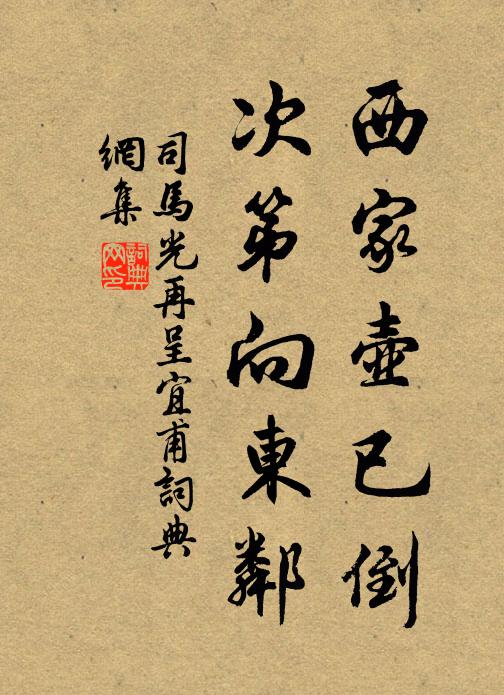 西家壺已倒
次第向東鄰
司馬光再呈宜甫詞典
網集
詞典網印